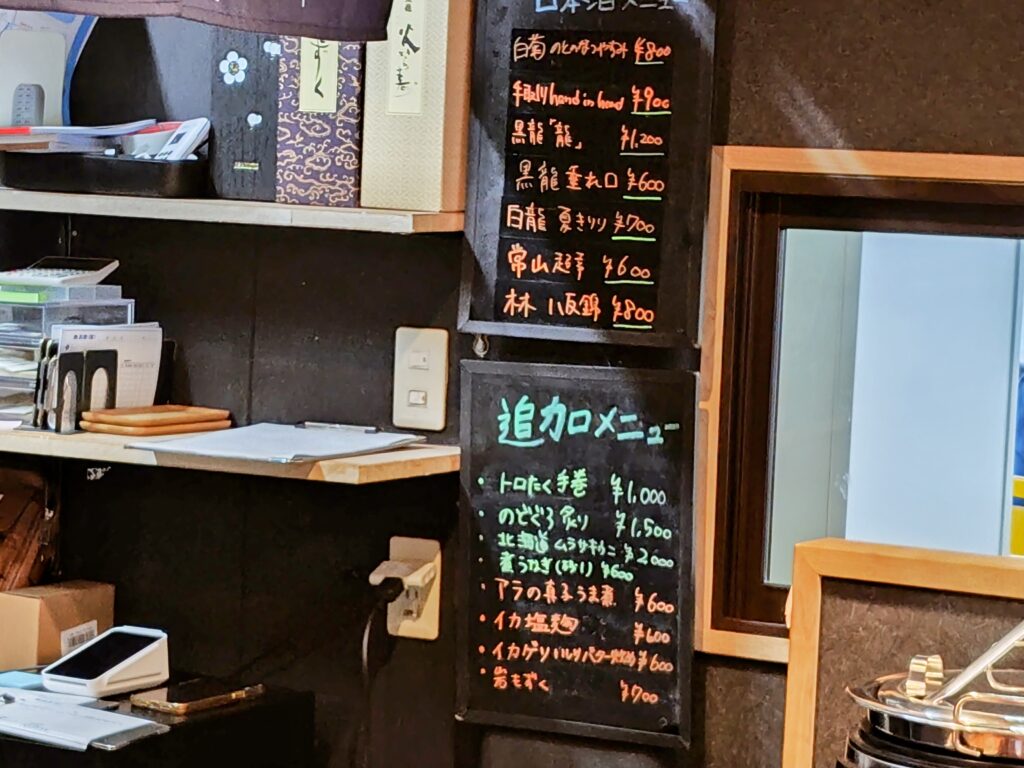 日本酒メニュー
白菊 ¥800
手取川 hand in hand ¥900
黒龍「龍」 ¥1,200
黒龍 垂れ口 ¥600
白龍 夏きりり ¥700
常山 超辛 ¥600
林 八反錦 ¥800
追加メニュー
・トロたく手巻 ¥1,000
・のどぐろ炙り ¥1,500
・北海道 ムラサキウニ ¥2000
・煮うなぎ ¥600
・アラの真子うま煮 ¥600
・イカ塩麹 ¥600
・イカゲソ バター ¥600
・岩もずく ¥700